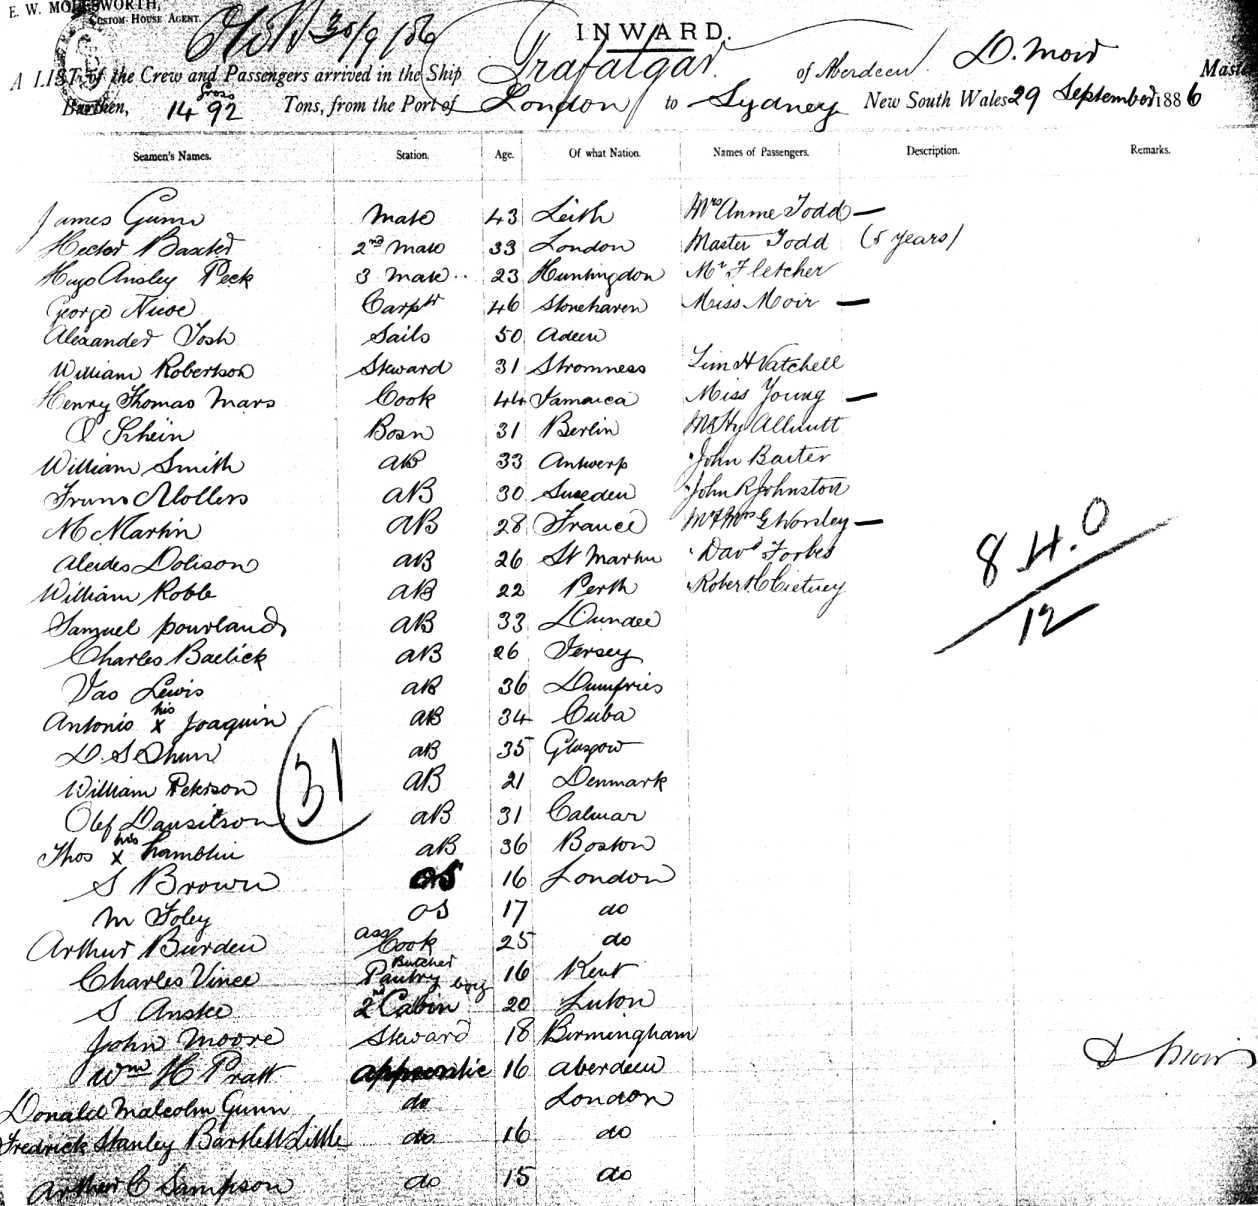 E. W. MOLESWORTH,
CUSTOM HOUSE AGENT.
30/9/86
INWARD.
A LIST of the Crew and Passengers arrived in the Ship Trafalgar of Aberdeen D. Moir Master
Burthen, 1492 Gross Tons, from the Port of London to Sydney New South Wales 29 September 1886
Seamen's Names. Station. Age. Of what Nation. Names of Passengers. Description. Remarks.
James Gunn Mate 43 Leith Mrs Annie Todd —
Hector Baxter 2nd Mate 33 London Master Todd (5 years)
Hugo Ansley Peck 3 Mate 23 Huntingdon Mr Fletcher
George Nicoe Carptr 46 Stonehaven Miss Moir —
Alexander Tosh Sails 50 Adeen
William Robertson Steward 31 Stromness H Vatchell
Henry Thomas Mars Cook 44 Jamaica Miss Young —
Bosn 31 Berlin Hy Allnutt
William Smith AB 33 Antwerp John Baxter
Mollers AB 30 Sweden John R Johnston
M Martin AB 28 France Mr & Mrs G Worsley —
Dolison AB 26 St Martin Davd Forbes
William Roble AB 22 Perth Robert
Samuel Pourland AB 33 Dundee
Charles Baelick AB 26 Jersey
Jas Lewis AB 36 Dumfries
Antonio his x Joaquin AB 34 Cuba
D. AB 35 Glasgow
William Peterson AB 21 Denmark
Olef AB 31 Calmar
Thos his x Hamblin AB 36 Boston
S Brown OS 16 London
M Foley OS 17 do
Arthur Burden ass Cook 25 do
Charles Vince Butcher Pantry boy 16 Kent
S Anstee 2nd Cabin 20 Luton
John Moore Steward 18 Birmingham
Wm H Pratt apprentic 16 Aberdeen
Donald Malcolm Gunn do London
Fredrick Stanley Bartlett Little do 16 do
Arthur C Sampson do 15 do
31
84.0
12
D Moir